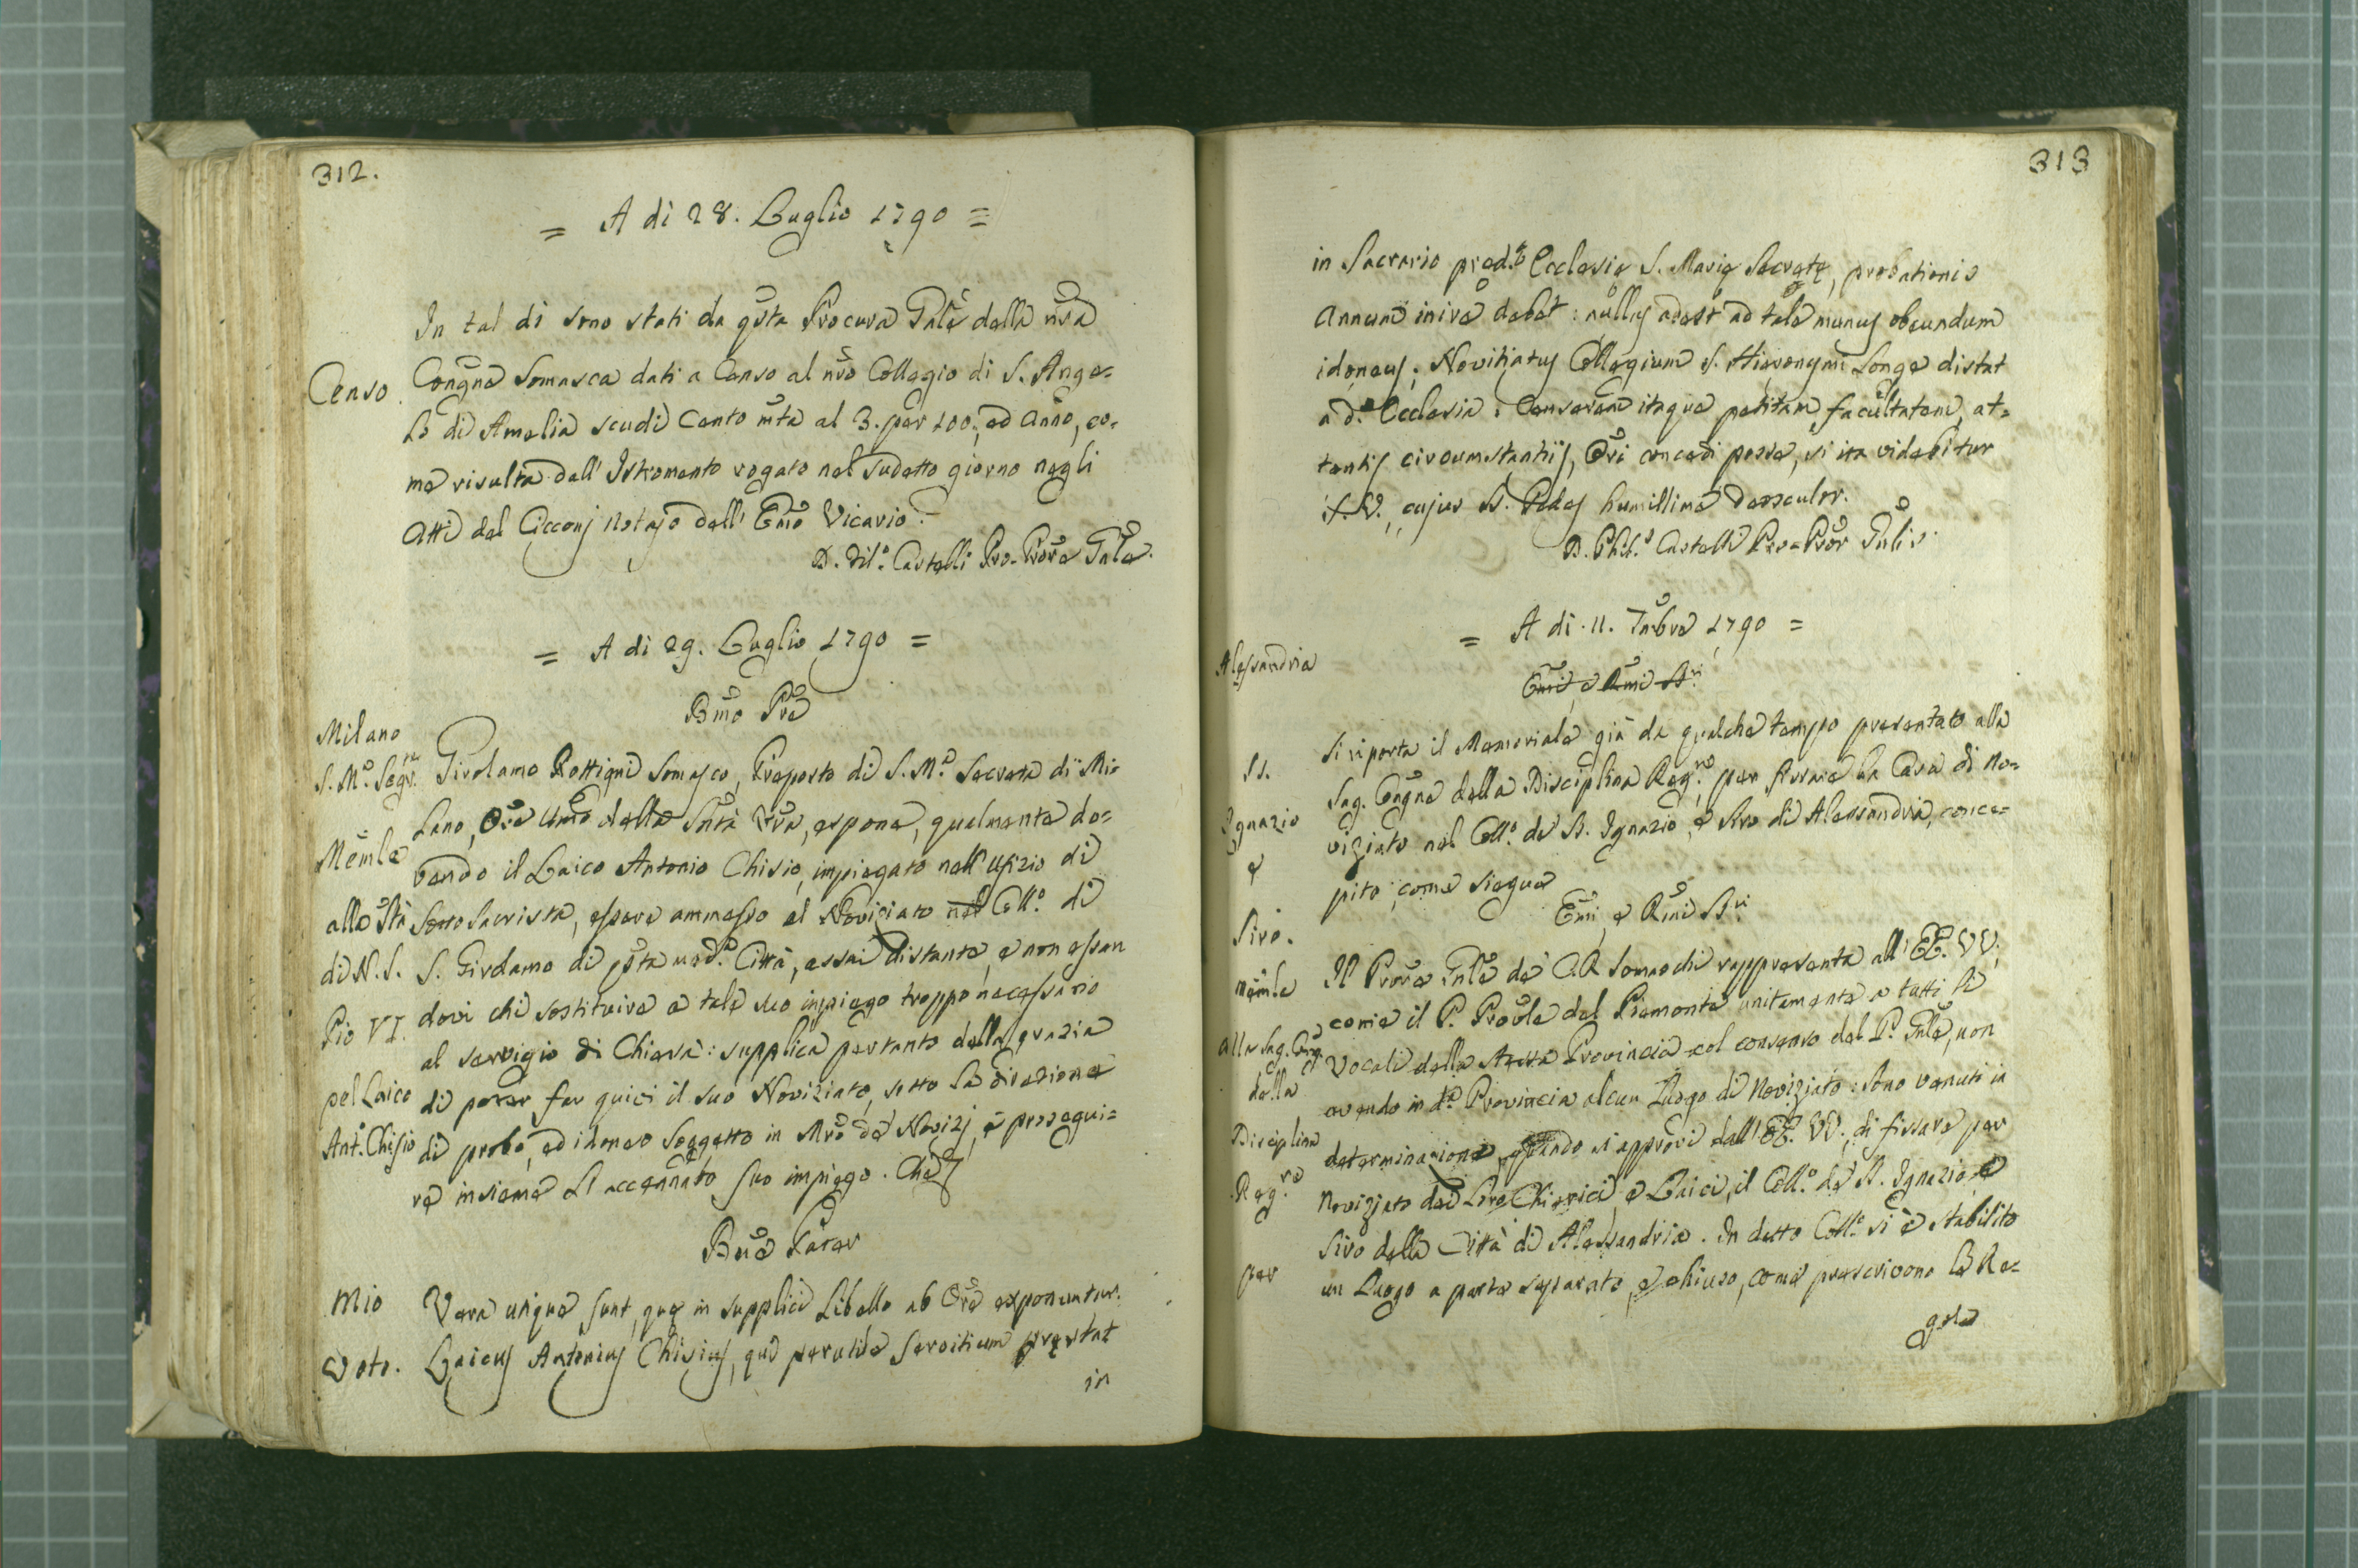 312.
= A di 28. Luglio 1790 =
In tal di sono stati da qsta Procura Gnle della nra
Censo. Congne Somasca dati a Censo al nro Collegio di S. Ange=
lo di Amelia scudi Cento mta al 3. per 100, ed anno, co=
me risulta dall' Istromento rogato nel sudetto giorno negli
Atti del Cicconj Notajo dell' Emo Vicario.
D. Fil.o Castelli Pro-Prore Gnle.
= A di 29. Luglio 1790 =
Bmo Pre
Milano
S. M.a Segr.ta Girolamo Rottigni Somasco, Preposto di S. M.a Secreta di Mi=
lano, Ore Umo della Sntà Vra, espone, qualmente do=
Memle vendo il Laico Antonio Chisio, impiegato nell' Ufizio di
alla Stà Sotto Sacrista, essere ammesso al Noviziato nel Coll.o di
di N. S. S. Girolamo di qsta med.a Città, assai distante, e non essen
Pio VI. dovi chi sostituire a tale suo impiego troppo necessario
al servigio di Chiesa: supplica pertanto della grazia
pel Laico di poter far quici il suo Noviziato, sotto la direzione
Ant.o Chisio di probo, ed idoneo Soggetto in Mro de' Novizj, e prosegui=
re insieme l'accennato suo impiego. Che
Bme Pater
Mio Vera utique sunt, quę in supplici Libello ab Ore exponuntur.
Voto. Laicus Antonius Chisius, qui perutile servitium pręstat
in
313
in Sacrario pred.tę Ecclesię S. Marię Secretę, probationis
Annum inire debet: nullus adest ad tale munus obeundum
idoneus; Novitiatus Collegium S. Hieronymi longe distat
a d.a Ecclesia: Censerem itaque petitam facultatem, at=
tentis circumstantiis, Ori concedi posse, si ita videbitur
S. V., cujus SS. Pedes humillime deosculor.
D. Phil.s Castelli Pro-Pror Gnlis.
= A di 11. 7mbre 1790 =
Alessandria
Emi, e Rmi SS.ri
Si riporta il Memoriale già da qualche tempo presentato alla
SS. Sag. Congne della Disciplina Reg.re per fissare la Casa di No=
Ignazio viziato nel Coll.o de' SS. Ignazio, e Siro di Alessandria, conce=
e pito, come siegue
Siro. Emi, e Rmi SS.ri
memle Il Prore Gnle de' C. R. Somaschi rappresenta all' EE. VV.
come il P. Prople del Piemonte unitamente a tutti li
alla Sag. Cong. Vocali della stessa Provincia col consenso del P. Gnle, non
della avendo in d.a Provincia alcun Luogo di Noviziato: sono venuti in
Disciplina determinazione, quando si approvi dall' EE. VV., di fissare per
Reg.re Noviziato dei loro Chierici, e Laici, il Coll.o de' SS. Ignazio, e
Siro della Città di Alessandria. In detto Coll.o si è stabilito
per un Luogo a parte separato, e chiuso, come prescrivono le Re=
gole